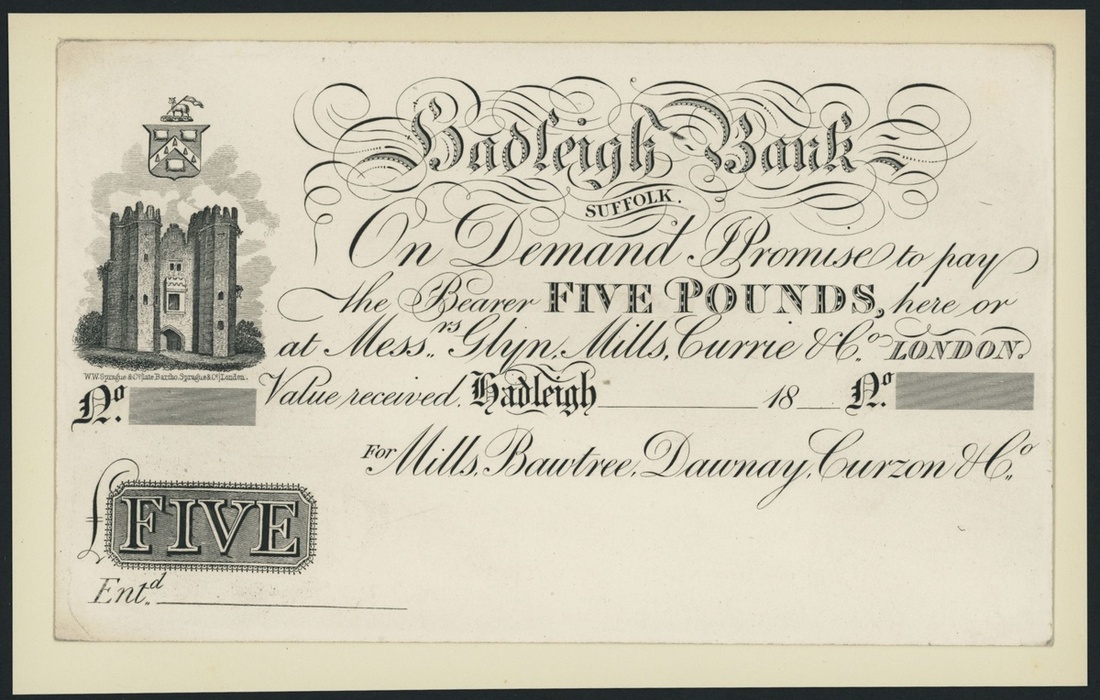 Hadleigh Bank
SUFFOLK.
On Demand I Promise to pay
the Bearer FIVE POUNDS, here or
at Mess.rs Glyn, Mills, Currie & Co. LONDON.
W.W. Sprague & Co. (late Bartho. Sprague & Co.) London.
Value received. Hadleigh 18
No. No.
For Mills, Bawtree, Dawnay, Curzon & Co.
£ FIVE
Ent.d